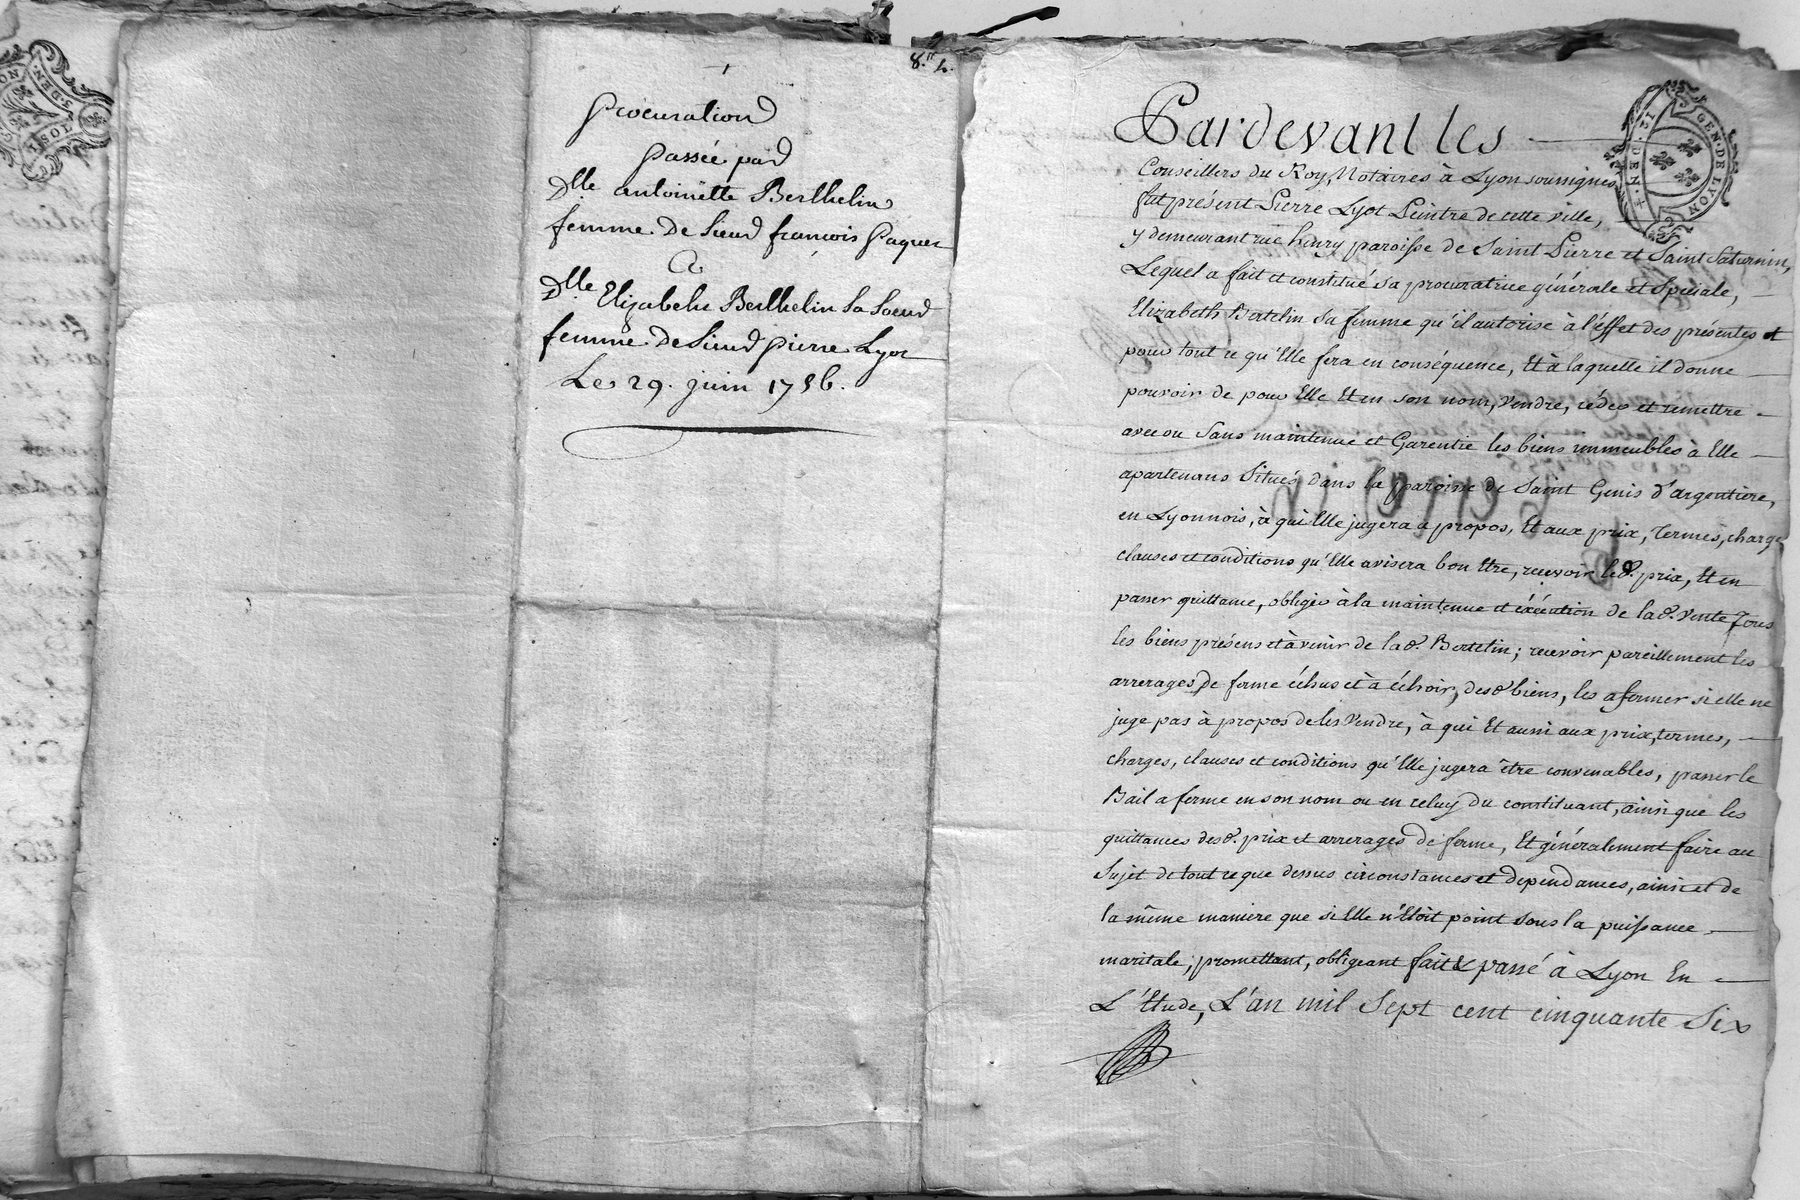 8.'' h.
Procuration
passée par
Dlle antoinette Berthelin
femme de Sieur françois paquet
A
Dlle Elizabeth Berthelin Sa Soeur
femme de Sieur pierre Lyot
Le 29. juin 1756.
Pardevant les
Conseillers du Roy, Notaires à Lyon soussignés
fut présent Pierre Lyot Peintre de cette ville,
y demeurant rue henry paroisse de Saint Pierre et Saint Saturnin,
Lequel a fait et constitué sa procuratrice générale et Speciale,
Elizabeth Bertelin sa femme qu'il autorise à l'effet des présentes et
pour tout ce qu'Elle fera en conséquence, Et à laquelle il donne
pouvoir de pour Elle Et en son nom, vendre, céder et remettre
avec ou Sans maintenue et Garentie les biens immeubles à Elle
apartenans Situés dans la paroisse de Saint Genis d'argentiere,
en Lyonnois, à qui Elle jugera a propos, Et aux prix, termes, charges
clauses et conditions qu'Elle avisera bon Etre, recevoir led. prix, Et en
passer quittance, obliger à la maintenue et éxécution de lad. vente Tous
les biens présens et à venir de lad. Bertelin; recevoir pareillement les
arrerages de ferme échus et à échoir, desd biens, les afermer si elle ne
juge pas à propos de les vendre, à qui Et aussi aux prix, termes,
charges, clauses et conditions qu'Elle jugera être convenables, passer le
Bail a ferme en son nom ou en celuy du constituant, ainsi que les
quittances desd. prix et arrerages de ferme, Et généralement faire au
Sujet de tout ce que dessus circonstances et dependances, ainsi et de
la même maniere que si Elle n'Etoit point sous la puissance
maritale; promettant, obligeant fait & passé à Lyon En
L'Etude, L'an mil Sept cent cinquante Six